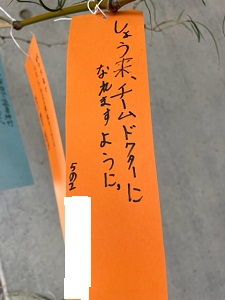 しょう来、チームドクターに
なれますように。
5の2